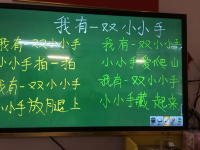 我有一双小小手
我有一双小小手
小小手拍一拍
我有一双小小手
小手放腿上
我有一双小小手
小小手爱爬山
我有一双小小手
小小手藏起来